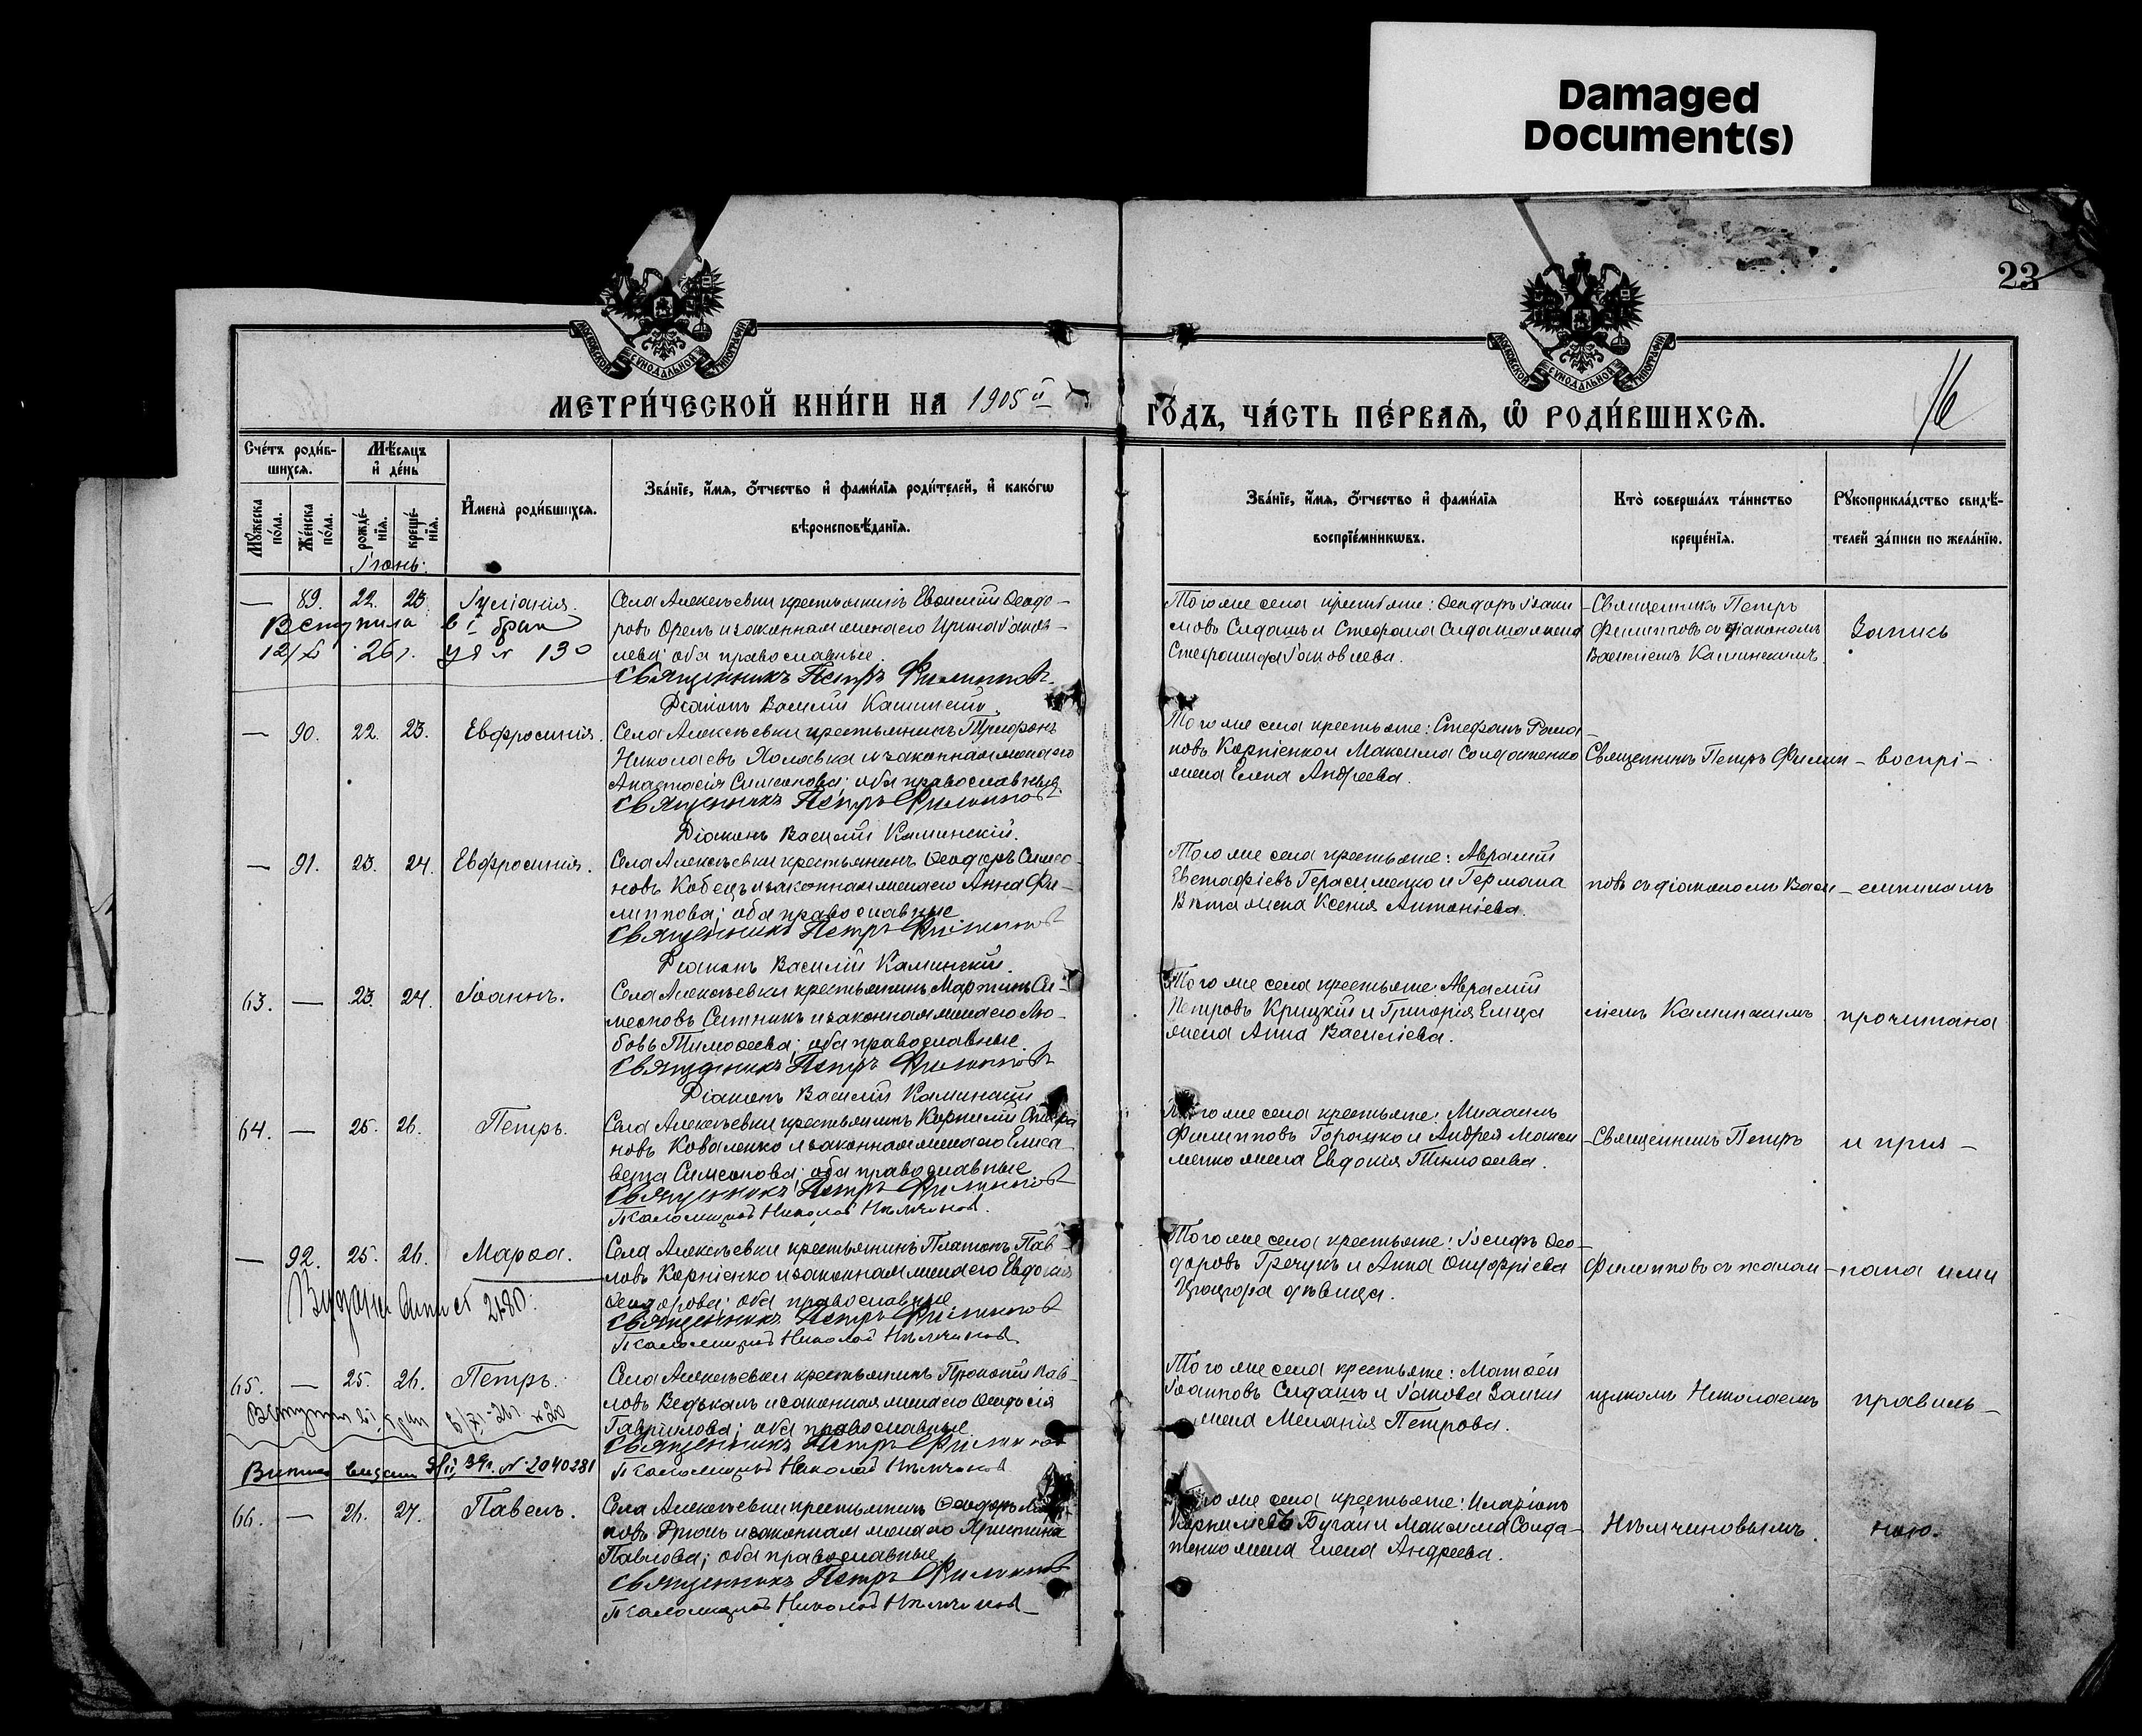 Damaged
Document(s)
23
16
МОСКОВСКОЙ СѴНОДАЛЬНОЙ ТИПОГРАФІИ
МОСКОВСКОЙ СѴНОДАЛЬНОЙ ТИПОГРАФІИ
МЕТРИ́ЧЕСКОЙ КНИ́ГИ НА 1905й
ГО́ДЪ, ЧА́СТЬ ПЕ́РВАѦ, Ѽ РОДИ́ВШИХСѦ.
Сче́тъ роди́в-
шихсѧ.
Мꙋ́жеска по́ла.
Же́нска по́ла.
Мѣ́сѧцъ
и҆ де́нь
рожде́-
нїѧ.
креще́-
нїѧ.
И҆мена̀ роди́вшихсѧ.
Зва́нїе, и҆́мѧ, ѻ҆́тчество и҆ фами́лїѧ роди́телей, и҆ како́гѡ
вѣроисповѣ́данїѧ.
Зва́нїе, и҆́мѧ, ѻ҆́тчество и҆ фами́лїѧ
воспрїе́мникѡвъ.
Кто̀ соверша́лъ та́инство
креще́нїѧ.
Рꙋкоприкла́дство свидѣ́-
телей за́писи по жела́нїю.
Іюнь:
— 89. 22. 23. Іуліанія.
Села Алексѣевки крестьянинъ Евѳимій Ѳеодо-
ровъ Орелъ и законная жена его Ирина Іаков-
лева; оба православные.
Священникъ Петръ Филиппов.
Діаконъ Василій Каминскій.
Вступила в I брак
26 г. № 130
Того же села крестьяне: Ѳеодоръ Іоаки-
мовъ Сидашъ и Стефана Сидаша жена
Іаковлева.
Священникъ Петръ
Филипповъ съ діакономъ
Василіемъ Каминскимъ.
Запись
— 90. 22. 23. Евфросинія.
Села Алексѣевки крестьянинъ Трифонъ
Николаевъ Халявка и законная жена его
Анастасія Симеонова; оба православные.
Священникъ Петръ Филиппов
Діаконъ Василій Каминскій.
Того же села крестьяне: Стефанъ Рома-
новъ Корніенко и Максима Солдатенко
жена Елена Андреева.
Священникъ Петръ Филип-
воспрі-
— 91. 23. 24. Евфросинія.
Села Алексѣевки крестьянинъ Ѳеодоръ Симео-
новъ Кобецъ и законная жена его Анна Фи-
липпова; оба православные
Священникъ Петръ Филиппов
Діаконъ Василій Каминскій.
Того же села крестьяне: Аврамій
Евстафіевъ Герасименко и Германа
жена Ксенія Антоніева.
повъ съ діакономъ Васи-
емникамъ
63. — 23. 24. Іоаннъ.
Села Алексѣевки крестьянинъ Мартинъ Си-
меоновъ Ситникъ и законная жена его Лю-
бовь Тимоѳеева; оба православные.
Священникъ Петръ Филиппов
Діаконъ Василій Каминскій
Того же села крестьяне: Аврамій
Петровъ Крицкій и Григорія Емца
жена Анна Василіева.
ліемъ Каминскимъ
прочитана
64. — 25. 26. Петръ.
Села Алексѣевки крестьянинъ Корнилій Стефа
новъ Коваленко и законная жена его Елиса-
вета Симеонова; оба православные
Священникъ Петръ Филиппов
Псаломщикъ Николай Нѣмчинов.
Того же села крестьяне: Михаилъ
Филипповъ Горошко и Андрея Макси-
менко жена Евдокія Тимоѳеева.
Священникъ Петръ
и приз-
— 92. 25. 26. Марѳа.
Села Алексѣевки крестьянинъ Платонъ Пав-
ловъ Корніенко и законная жена его Евдокія
Ѳеодорова; оба православные
Священникъ Петръ Филиппов
Псаломщикъ Николай Нѣмчинов.
2480.
Того же села крестьяне: Іосифъ Ѳео-
доровъ Гречукъ и Анна Онуфріева
дѣвица.
Филипповъ съ псалом-
нана ими
65. — 25. 26. Петръ.
Села Алексѣевки крестьянинъ Прокопій Пав-
ловъ и законная жена его Ѳеодосія
Гавриилова; оба православные
Священникъ Петръ Филиппов
Псаломщикъ Николай Нѣмчинов
№ 20
№ 2040281
Того же села крестьяне: Матѳей
Іоанновъ Сидашъ и Іакова Заики
жена Меланія Петрова.
щикомъ Николаемъ
правиль-
66. — 26. 27. Павелъ.
Села Алексѣевки крестьянинъ Ѳеодоръ
новъ и законная жена его Христина
Павлова; оба православные.
Священникъ Петръ Филиппов
Псаломщикъ Николай Нѣмчинов
Того же села крестьяне: Иларіонъ
Корниліевъ Бугай и Максима Солда-
тенко жена Елена Андреева.
Нѣмчиновымъ.
ною.